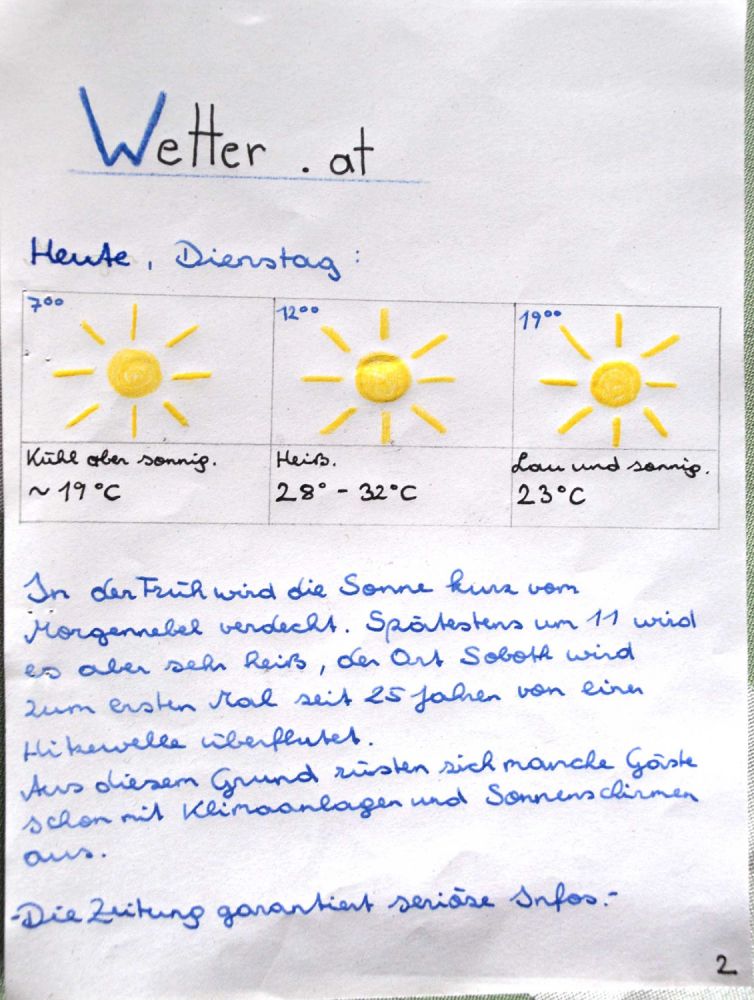 Wetter . at
Heute, Dienstag:
7⁰⁰
12⁰⁰
19⁰⁰
Kühl aber sonnig.
Heiß.
Lau und sonnig.
~ 19°C
28° - 32°C
23°C
In der Früh wird die Sonne kurz vom
Morgennebel verdeckt. Spätestens um 11 wird
es aber sehr heiß, der Ort Soboth wird
zum ersten Mal seit 25 Jahren von einer
Hitzewelle überflutet.
Aus diesem Grund rüsten sich manche Gäste
schon mit Klimaanlagen und Sonnenschirmen
aus.
-Die Zeitung garantiert seriöse Infos.-
2